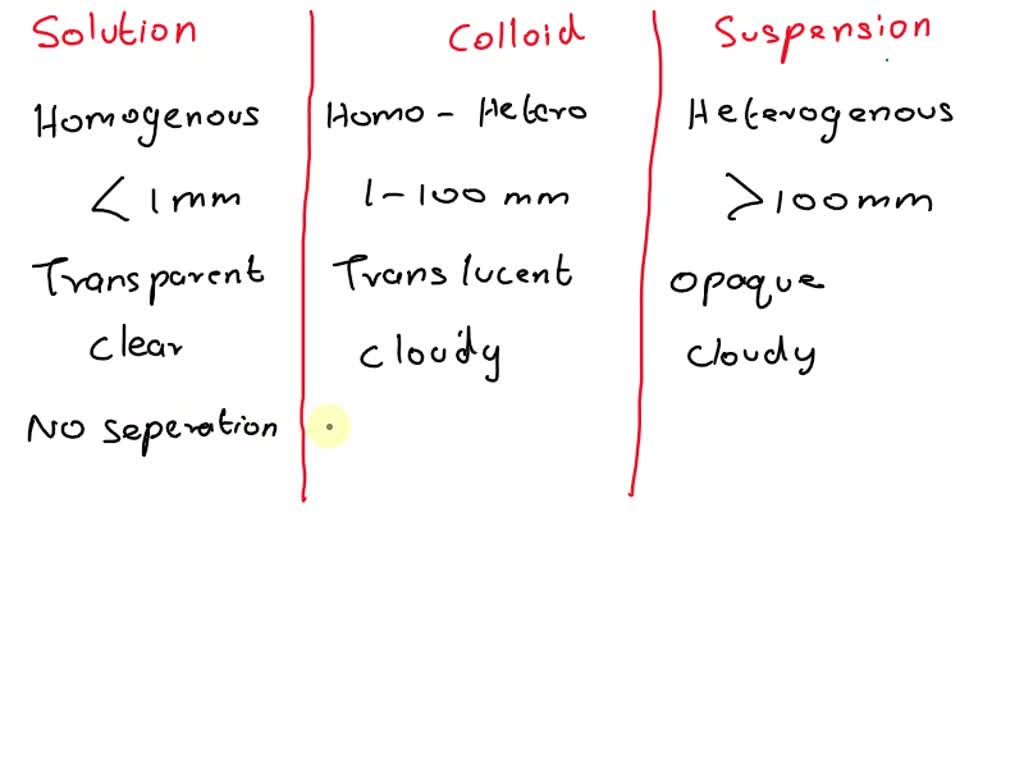 Solution Colloid Suspension
Homogenous Homo - Hetero Heterogenous
< 1mm 1-100 mm >100mm
Transparent Translucent opaque
clear cloudy cloudy
No seperation